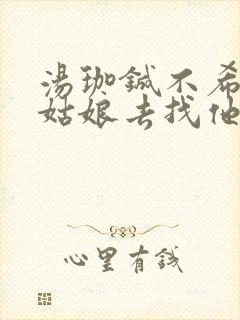 湯珈鋮不希
姑娘去找他
心里有錢